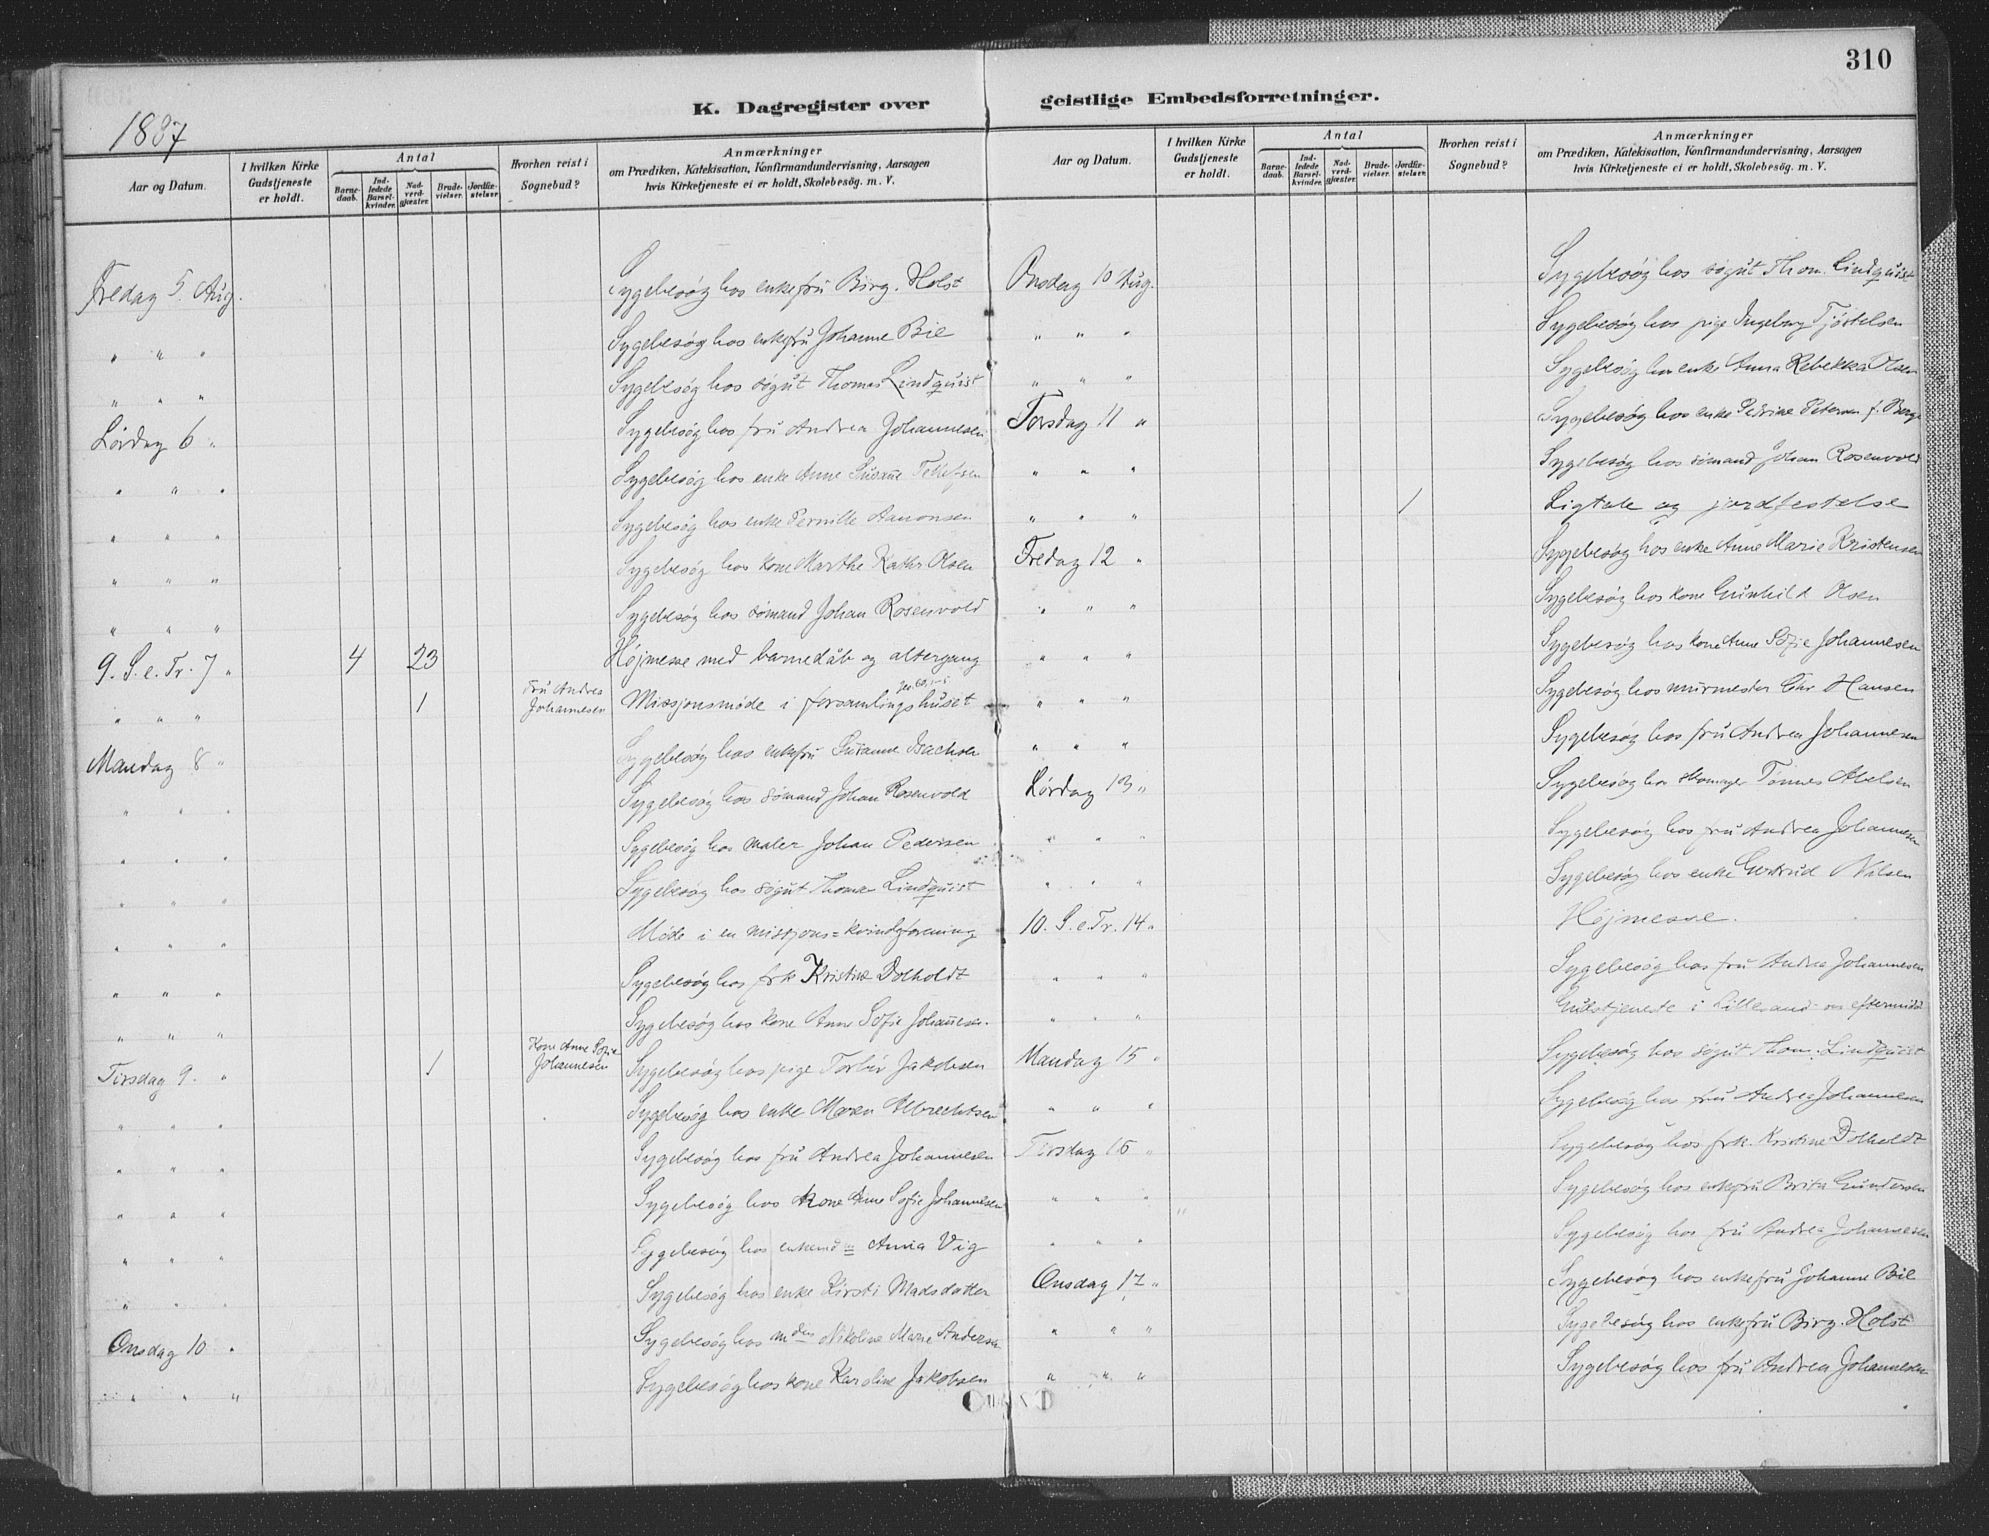 310
K. Dagregister over geistlige Embedsforretninger.
1887
Aar og Datum.
I hvilken Kirke Gudstjeneste er holdt.
Antal
Barnedaab.
Indledede Barselkvinder.
Nadverdgjæster.
Brudevielser.
Jordfæstelser.
Hvorhen reist i Sognebud?
Anmærkninger
om Prædiken, Katekisation, Konfirmandundervisning, Aarsagen
hvis Kirketjeneste ei er holdt, Skolebesög. m. V.
Fredag 5. Aug. Sygebesøg hos enkefru Birg. Holst
" " " Sygebesøg hos enkefru Johanne Bie
" " " Sygebesøg hos søgut Thomas Lindquist
Lördag 6 " Sygebesøg hos fru Andrea Johannesen
" " " Sygebesøg hos enke Anne Susanne Tellefsen
" " " Sygebesøg hos enke Pernille Aanonsen
" " " Sygebesøg hos kone Marthe Kathr Olsen
" " " Sygebesøg hos sømand Johan Rosenvold
9. S. e. Tr. 7 " 4 23 Højmesse med barnedåb og altergang
" " " 1 Fru Andrea Johannesen Missjonsmøde i forsamlingshuset Jes. 60, 1-5
Mandag 8 " Sygebesøg hos enkefru Susanne Isachsen
" " " Sygebesøg hos sømand Johan Rosenvold
" " " Sygebesøg hos maler Johan Pedersen
" " " Sygebesøg hos søgut Thomas Lindquist
" " " Møde i en missjons=kvindeforening
" " " Sygebesøg hos frk Kristine Dolholdt
" " " Sygebesøg hos kone Anne Sofie Johannesen.
Tirsdag 9. " 1 Kone Anne Sofie Johannesen Sygebesøg hos pige Torbör Jakobsen
" " " Sygebesøg hos enke Maren Albrechtsen
" " " Sygebesøg hos fru Andrea Johannesen
" " " Sygebesøg hos kone Anne Sofie Johannesen
" " " Sygebesøg hos enkemd m Anna Vig
" " " Sygebesøg hos enke Kirsti Madsdatter
Onsdag 10 " Sygebesøg hos mden Nikoline Marie Andersen
" " " Sygebesøg hos kone Karoline Jakobsen
Aar og Datum.
I hvilken Kirke Gudstjeneste er holdt.
Antal
Barnedaab.
Indledede Barselkvinder.
Nadverdgjæster.
Brudevielser.
Jordfæstelser.
Hvorhen reist i Sognebud?
Anmærkninger
om Prædiken, Katekisation, Konfirmandundervisning, Aarsagen
hvis Kirketjeneste ei er holdt, Skolebesög. m. V.
Onsdag 10 Aug. Sygebesøg hos søgut Thom. Lindquist
" " " Sygebesøg hos pige Ingeborg Tjöstelsen
" " " Sygebesøg hos enke Anna Rebekka Olsen
Torsdag 11 " Sygebesøg hos enke Pedrine Petersen f. Berge
" " " Sygebesøg hos sømand Johan Rosenvold
" " " 1 Ligtale og jordfestelse
Fredag 12 " Sygebesøg hos enke Anne Marie Kristensen
" " " Sygebesøg hos kone Gunhild Olsen
" " " Sygebesøg hos kone Anne Sofie Johannesen
" " " Sygebesøg hos murmester Chr Hansen
" " " Sygebesøg hos fru Andrea Johannesen
Lördag 13 " Sygebesøg hos skomager Tönnes Abelsen
" " Sygebesøg hos fru Andrea Johannesen
" " " Sygebesøg hos enke Gertrud Nilsen
10. S. e. Tr. 14 " Højmesse.
" " " Sygebesøg hos fru Andrea Johannesen
" " " Gudstjeneste i Lillesand om eftermidd
Mandag 15 " Sygebesøg hos søgut Thom. Lindquist
" " " Sygebesøg hos fru Andrea Johannesen
Tirsdag 16 " Sygebesøg hos frk. Kristine Dolholdt
" " " Sygebesøg hos enkefru Brita Gundersen
" " " Sygebesøg hos fru Andrea Johannesen
Onsdag 17 " Sygebesøg hos enkefru Johanne Bie
" " " Sygebesøg hos enkefru Birg. Holst
" " " Sygebesøg hos fru Andrea Johannesen